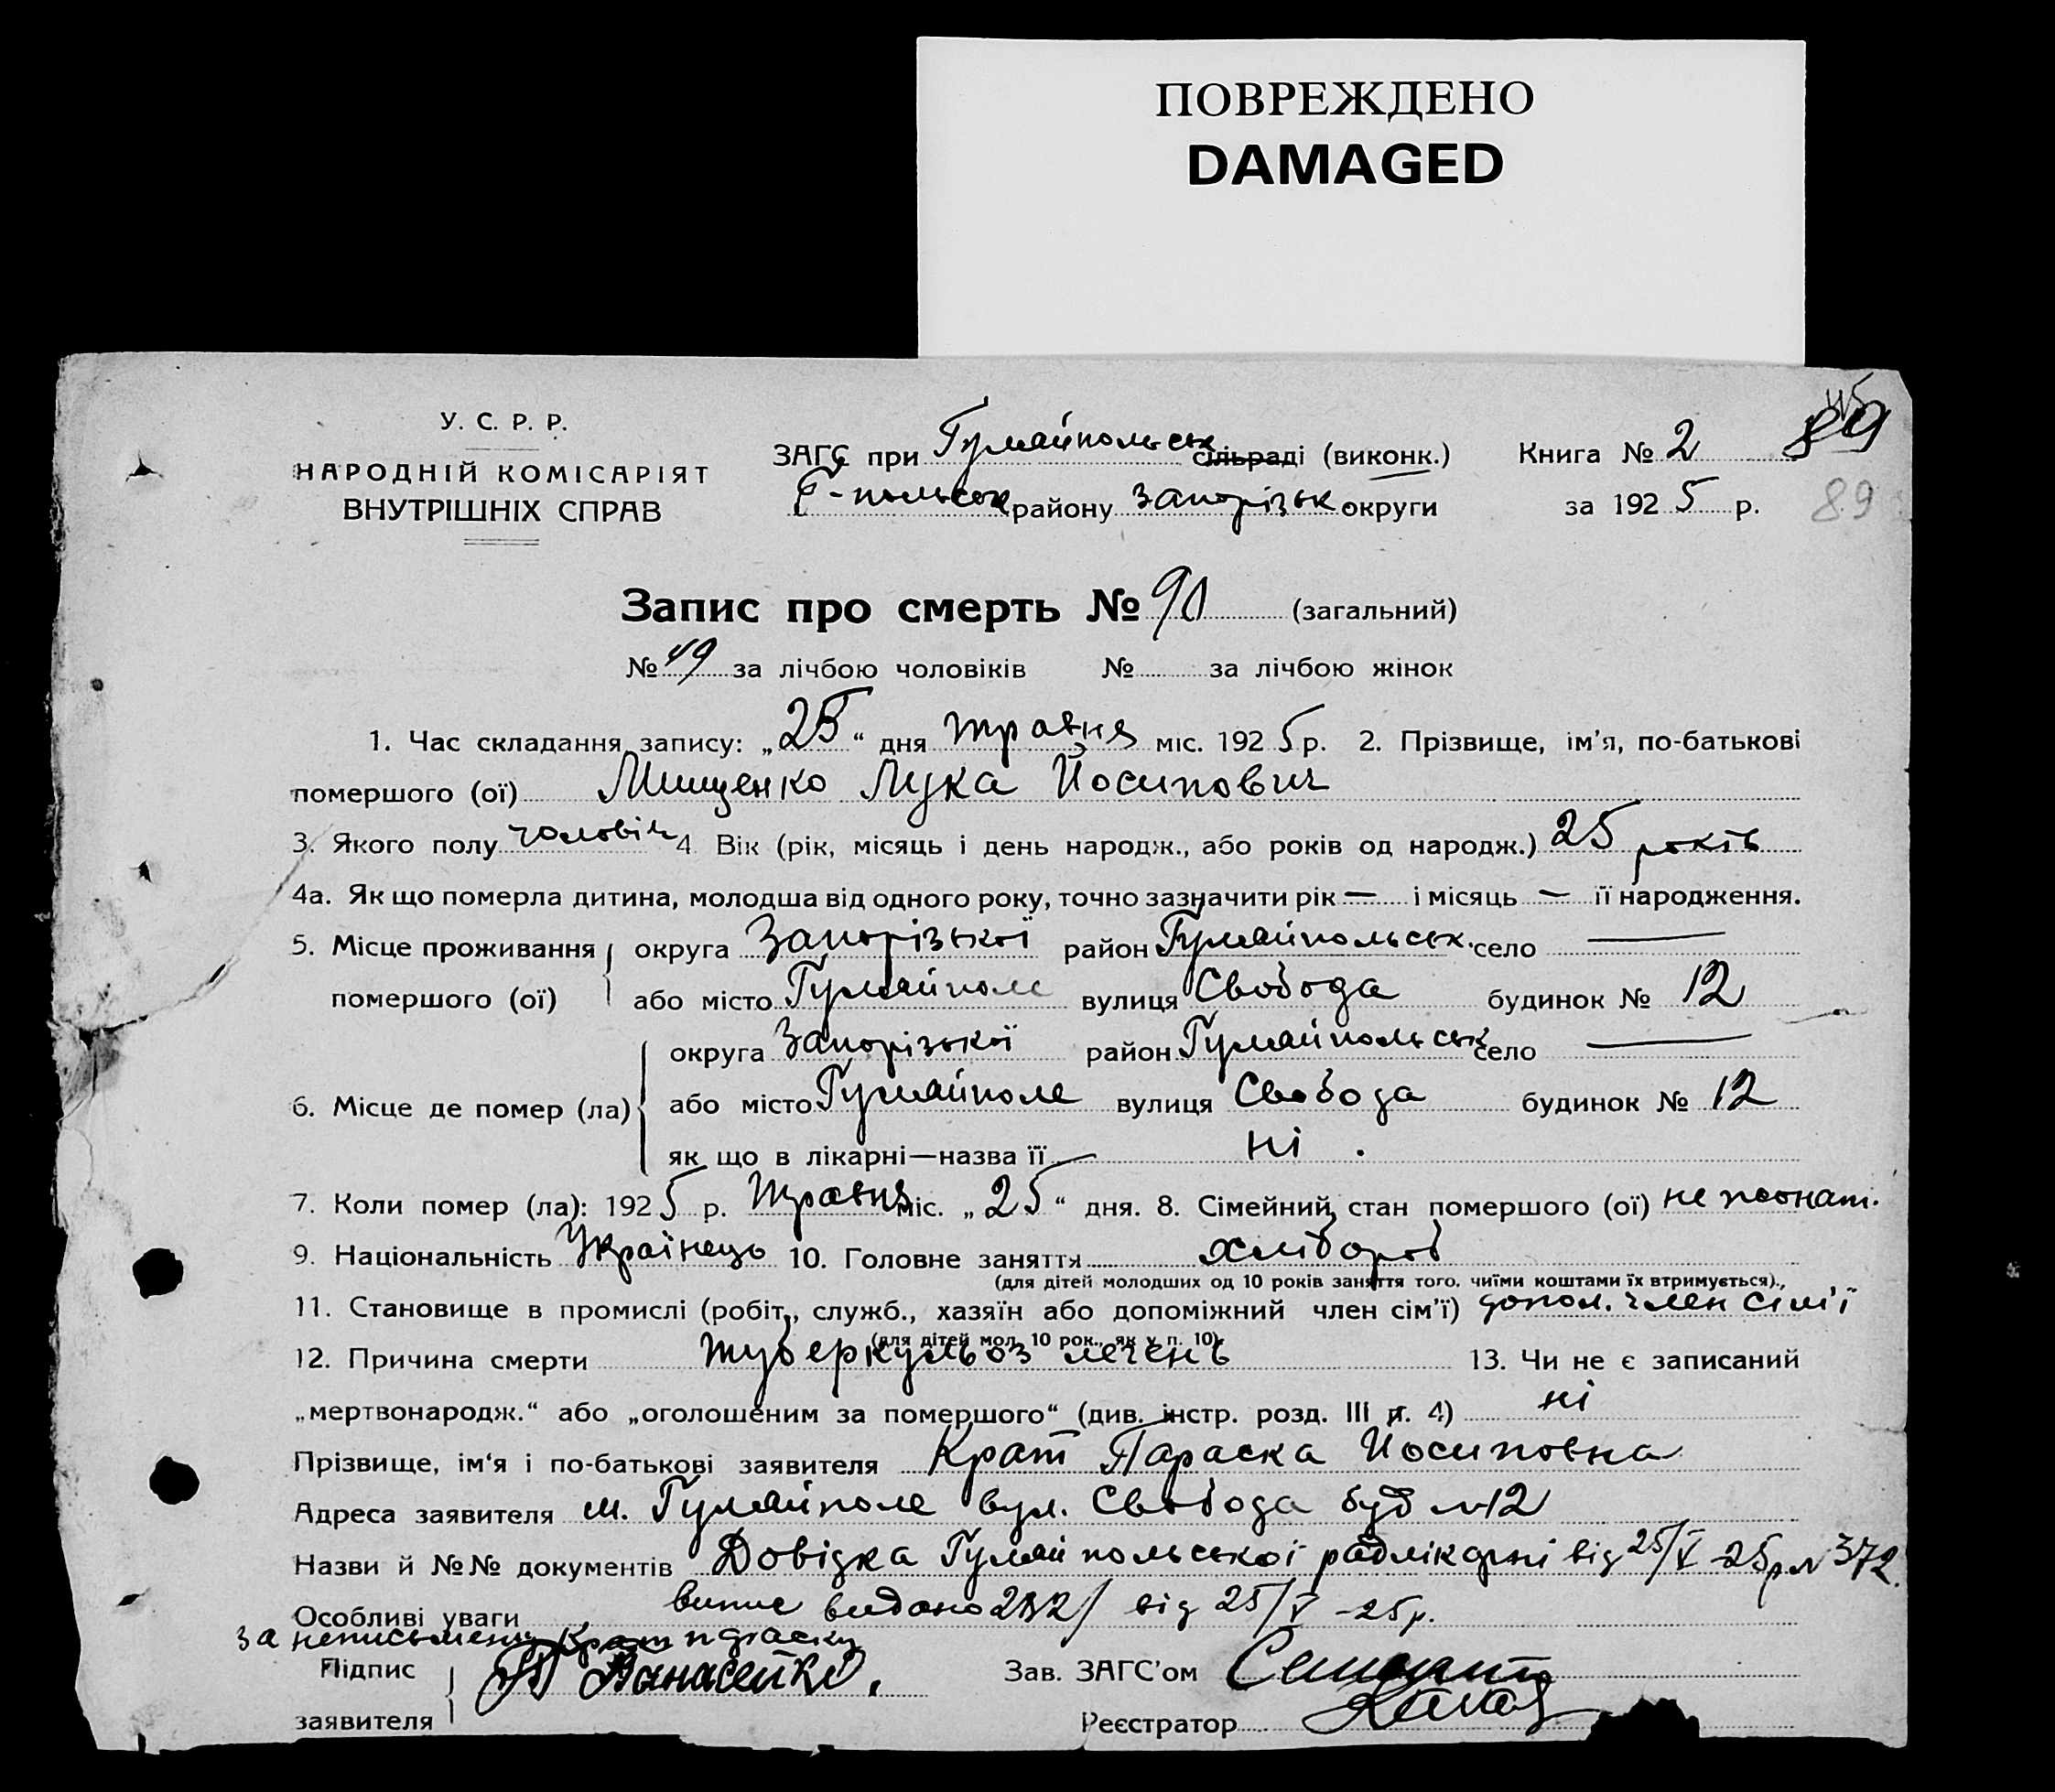 ПОВРЕЖДЕНО
DAMAGED
У. С. Р. Р.
НАРОДНІЙ КОМІСАРІЯТ
ВНУТРІШНІХ СПРАВ
ЗАГС при Гуляйпольськ сільраді (виконк.)
Г-польськ району Запорізьк округи
Книга № 2
за 1925 р.
89
89
Запис про смерть № 90 (загальний)
№ 49 за лічбою чоловіків № за лічбою жінок
1. Час складання запису: „25“ дня травня міс. 1925 р. 2. Прізвище, ім'я, по-батькові
помершого (ої) Мищенко Лука Йосипович
3. Якого полу чоловіч 4 Вік (рік, місяць і день народж., або років од народж.) 25 років
4а. Як що померла дитина, молодша від одного року, точно зазначити рік — і місяць — її народження.
5. Місце проживання округа Запорізької район Гуляйпольськ. село —
помершого (ої) або місто Гуляйполе вулиця Свобода будинок № 12
округа Запорізької район Гуляйпольськ село —
6. Місце де помер (ла) або місто Гуляйполе вулиця Свобода будинок № 12
як що в лікарні—назва її ні.
7. Коли помер (ла): 1925 р. Травня міс. „25“ дня. 8. Сімейний стан помершого (ої) не жонат.
9. Національність Українець 10. Головне заняття хлібороб
(для дітей молодших од 10 років заняття того, чиїми коштами їх втримується).,
11. Становище в промислі (робіт., служб., хазяїн або допоміжний член сім'ї) допом. член сім'ї
(для дітей мол. 10 рок., як у п. 10).
12. Причина смерти туберкульоз легень 13. Чи не є записаний
„мертвонародж.“ або „оголошеним за помершого“ (див. інстр. розд. III п. 4) ні
Прізвище, ім'я і по-батькові заявителя Крат Параска Йосиповна
Адреса заявителя м. Гуляйполе вул. Свобода буд №12
Назви й №№ документів Довідка Гуляйпольської радлікарні від 25/V-25р № 372.
Особливі уваги випис видано 2132/ від 25/V-25р.
За неписьмену Крат параску
Підпис Панасенко.
заявителя
Зав. ЗАГС'ом
Реєстратор